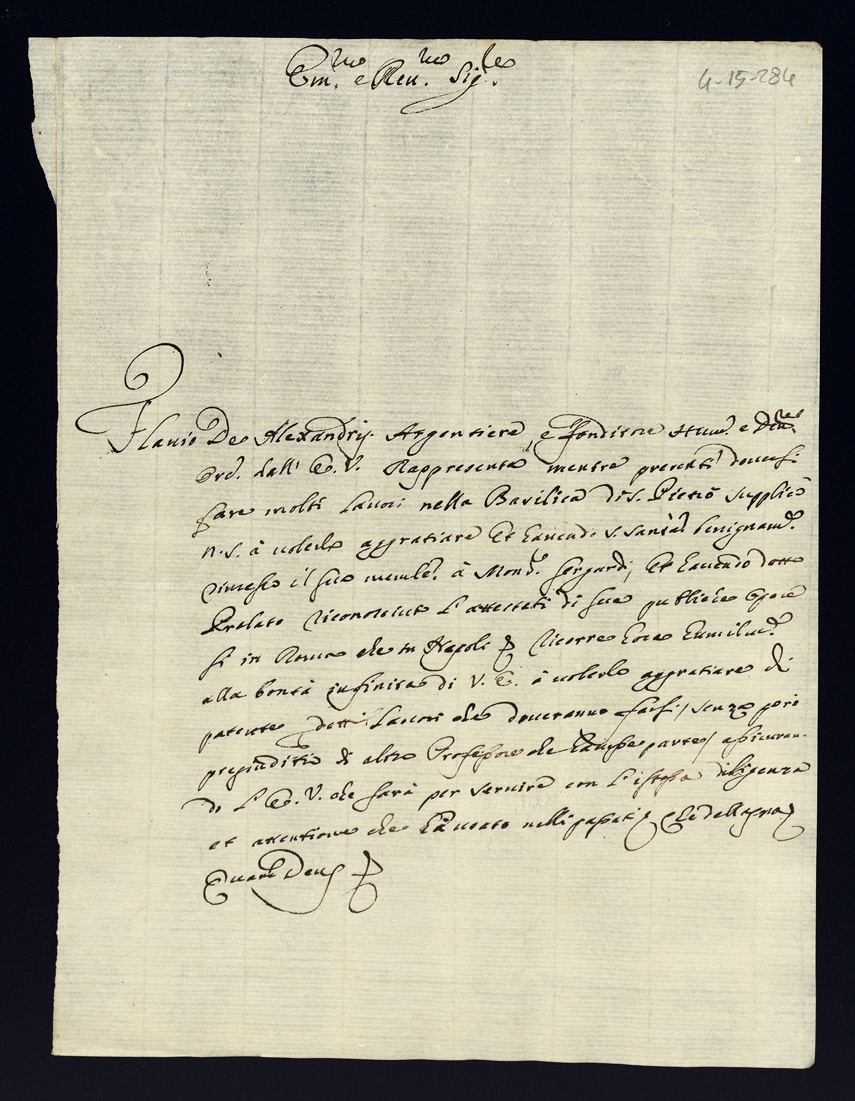 Em.mo e Reu.mo Sig.re
4-15-284
Flauio De Alexandrijs Argentiere, e fonditore Hum.e e Diu.mo
Ore. dall' E. V. Rappresenta mentre precati douersi
fare molti Lauori nella Basilica di S. Pietro supplicò
N. S. à uolerlo aggratiare et hauendo S. Santà benignam.e
rimesso il suo memle. à Mons.r Sergardi, et hauendo dotto
Prelato riconosciut L'attestati di sue publiche opere
si in Roma che in Napoli ricorre hora humilm.e
alla bontà infinita di V. E. à uolerlo aggratiare di
patente detti Lauori che doueranno farsi, senza però
pregiuditio di altro Professore che hauesse parte, assicuran-
do L' E. V. che sarà per seruire con L'istessa diligenza
et attentione che hà usato nelli passati, Che della gra
Quam Deus